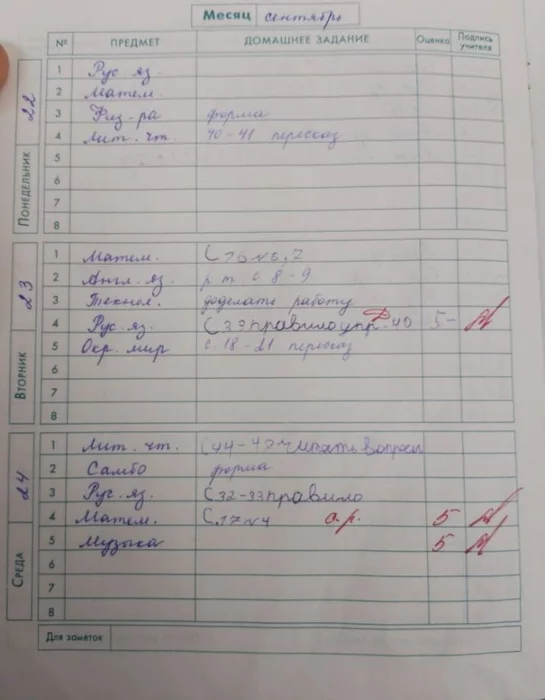 Месяц сентябрь
№ ПРЕДМЕТ ДОМАШНЕЕ ЗАДАНИЕ Оценка Подпись учителя
ПОНЕДЕЛЬНИК 22
1 Рус. яз.
2 Матем.
3 Физ-ра форма
4 Лит. чт. 40-41 пересказ
5
6
7
8
ВТОРНИК 23
1 Матем. С 16 №6,7
2 Англ. яз. р.т. с 8-9
3 Технол. доделать работу
4 Рус. яз. С 33 правило упр. 40 5-
5 Окр. мир с. 18-21 пересказ
6
7
8
СРЕДА 24
1 Лит. чт. С 44-47 читать вопросы
2 Самбо форма
3 Рус. яз. С 32-33 правило
4 Матем. С. 17 №4 с.р. 5
5 Музыка 5
6
7
8
Для заметок